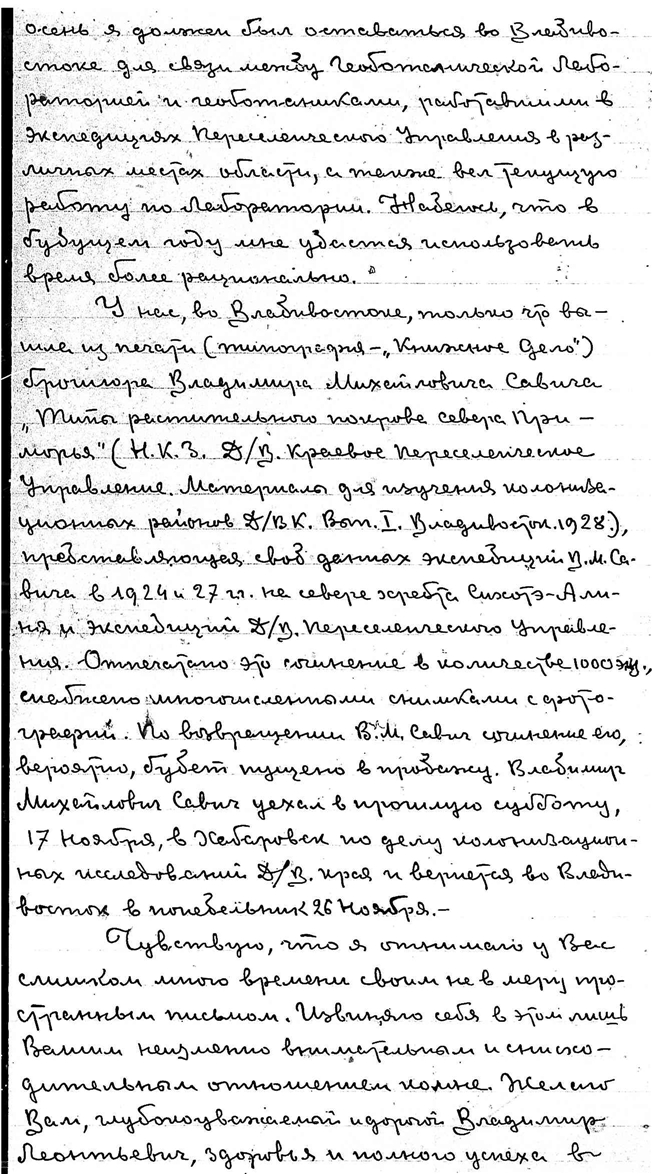 осень я должен был оставаться во Владиво-
стоке для связи между Геоботанической Лабо-
раторией и геоботаниками, работавшими в
экспедициях Переселенческого Управления в раз-
личных местах области, а также вел текущую
работу по Лаборатории. Надеюсь, что в
будущем году мне удастся использовать
время более рационально.
У нас, во Владивостоке, только что вы-
шла из печати (типография – „Книжное Дело")
брошюра Владимира Михайловича Савича
„Типы растительного покрова севера При-
морья" (Н.К.З. Д/В. Краевое Переселенческое
Управление. Материалы для изучения колониза-
ционных районов Д/ВК. Вып. I. Владивосток. 1928.),
представляющая свод данных экспедиций В.М. Са-
вича в 1924 и 27 гг. на севере хребта Сихотэ-Али-
ня и экспедиций Д/В. Переселенческого Управле-
ния. Отпечатано это сочинение в количестве 1000 экз.,
снабжено многочисленными снимками с фото-
графий. По возвращении В.М. Савич сочинение его,
вероятно, будет пущено в продажу. Владимир
Михайлович Савич уехал в прошлую субботу,
17 Ноября, в Хабаровск по делу колонизацион-
ных исследований Д/В. края и вернется во Влади-
восток в понедельник 26 Ноября. –
Чувствую, что я отнимаю у Вас
слишком много времени своим не в меру про-
странным письмом. Извиняю себя в этом лишь
Вашим неизменно внимательным и снисхо-
дительным отношением ко мне. Желаю
Вам, глубокоуважаемый и дорогой Владимир
Леонтьевич, здоровья и полного успеха в